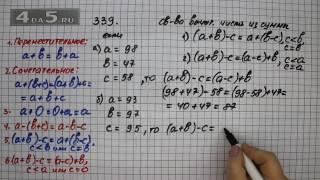 4adm5.ru
1. Переместительное:
a+b = b+a
2. Сочетательное:
a+(b+c)=(a+b)+c=
=a+b+c
3. a+0=0+a=a
4. a-(b+c)=a-b-c
5. (a+b)-c=a+(b-c)
c<b или c=b
6. (a+b)-c=(a-c)+b,
c<a или c=a
339.
если
а) a = 98
b = 47
c = 58, то (a+b)-c = (a-c)+b
(98+47)-58=(98-58)+47=
= 40+47=87
б) a = 93
b = 97
c = 95, то (a+b)-c =
св-во вычит. числа из суммы
1) (a+b)-c=a+(b-c), c<b
c=b
2) (a+b)-c=(a-c)+b, c<a
c=a